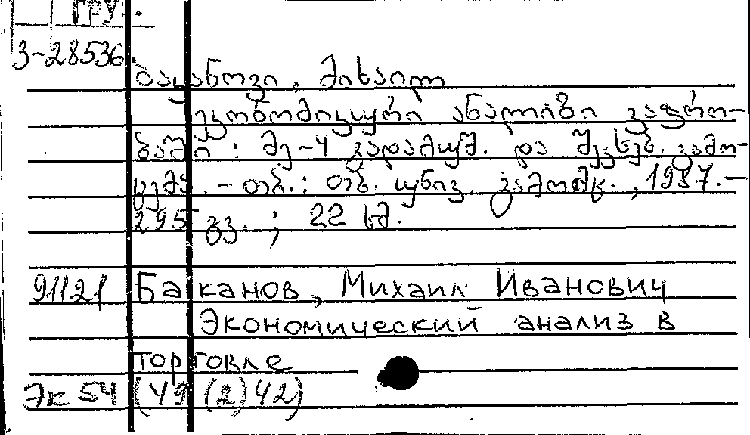 ГРУ.
3-28536.
ბაკანოვი, მიხაილ
ეკონომიკური ანალიზი ვაჭრო-
ბაში : მე-4 გადამუშ. და შევსებ. გამო-
ცემა. - თბ. : თბ. უნივ. გამომც., 1987. -
295 გვ. ; 22 სმ.
91121 Баканов, Михаил Иванович
Экономический анализ в
торговле
Эк 54 (У9 (2) 42)